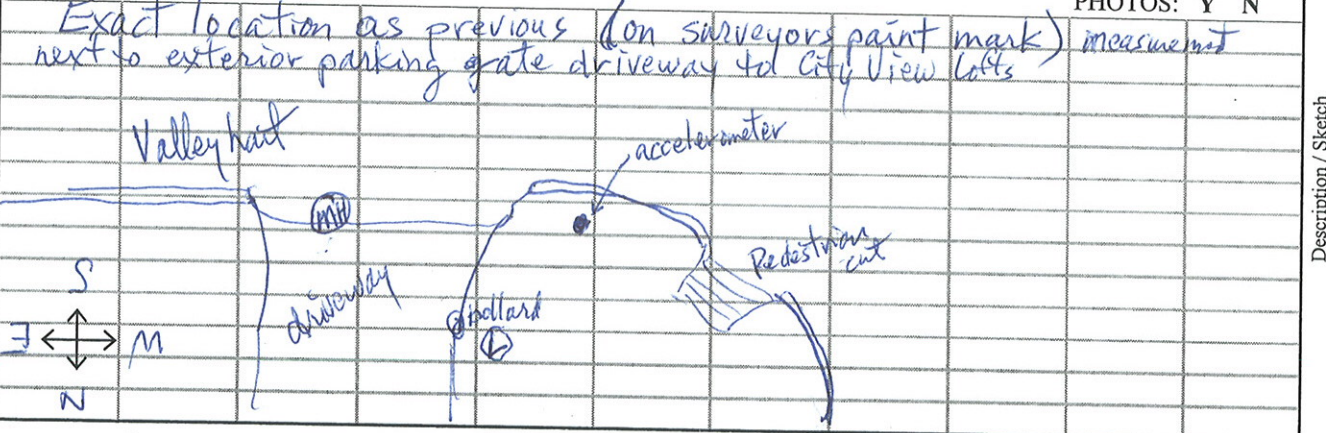 PHOTOS: Y N
Exact location as previous (on surveyors paint mark) measuremnt
next to exterior parking gate driveway to City View Lofts
Valleyhart
accelerometer
MH
Pedestrian
cut
driveway
bollard
L
S
E W
N
Description / Sketch